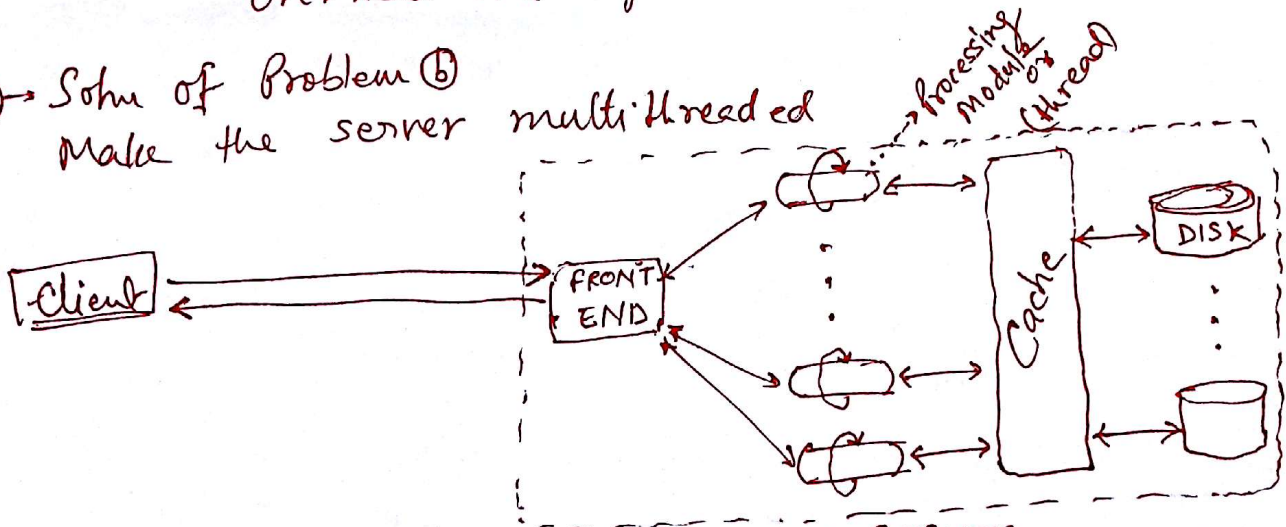 → Soln of Problem ⓑ
Make the server multithreaded
Processing
Module
or
(thread)
Client
FRONT
END
Cache
DISK